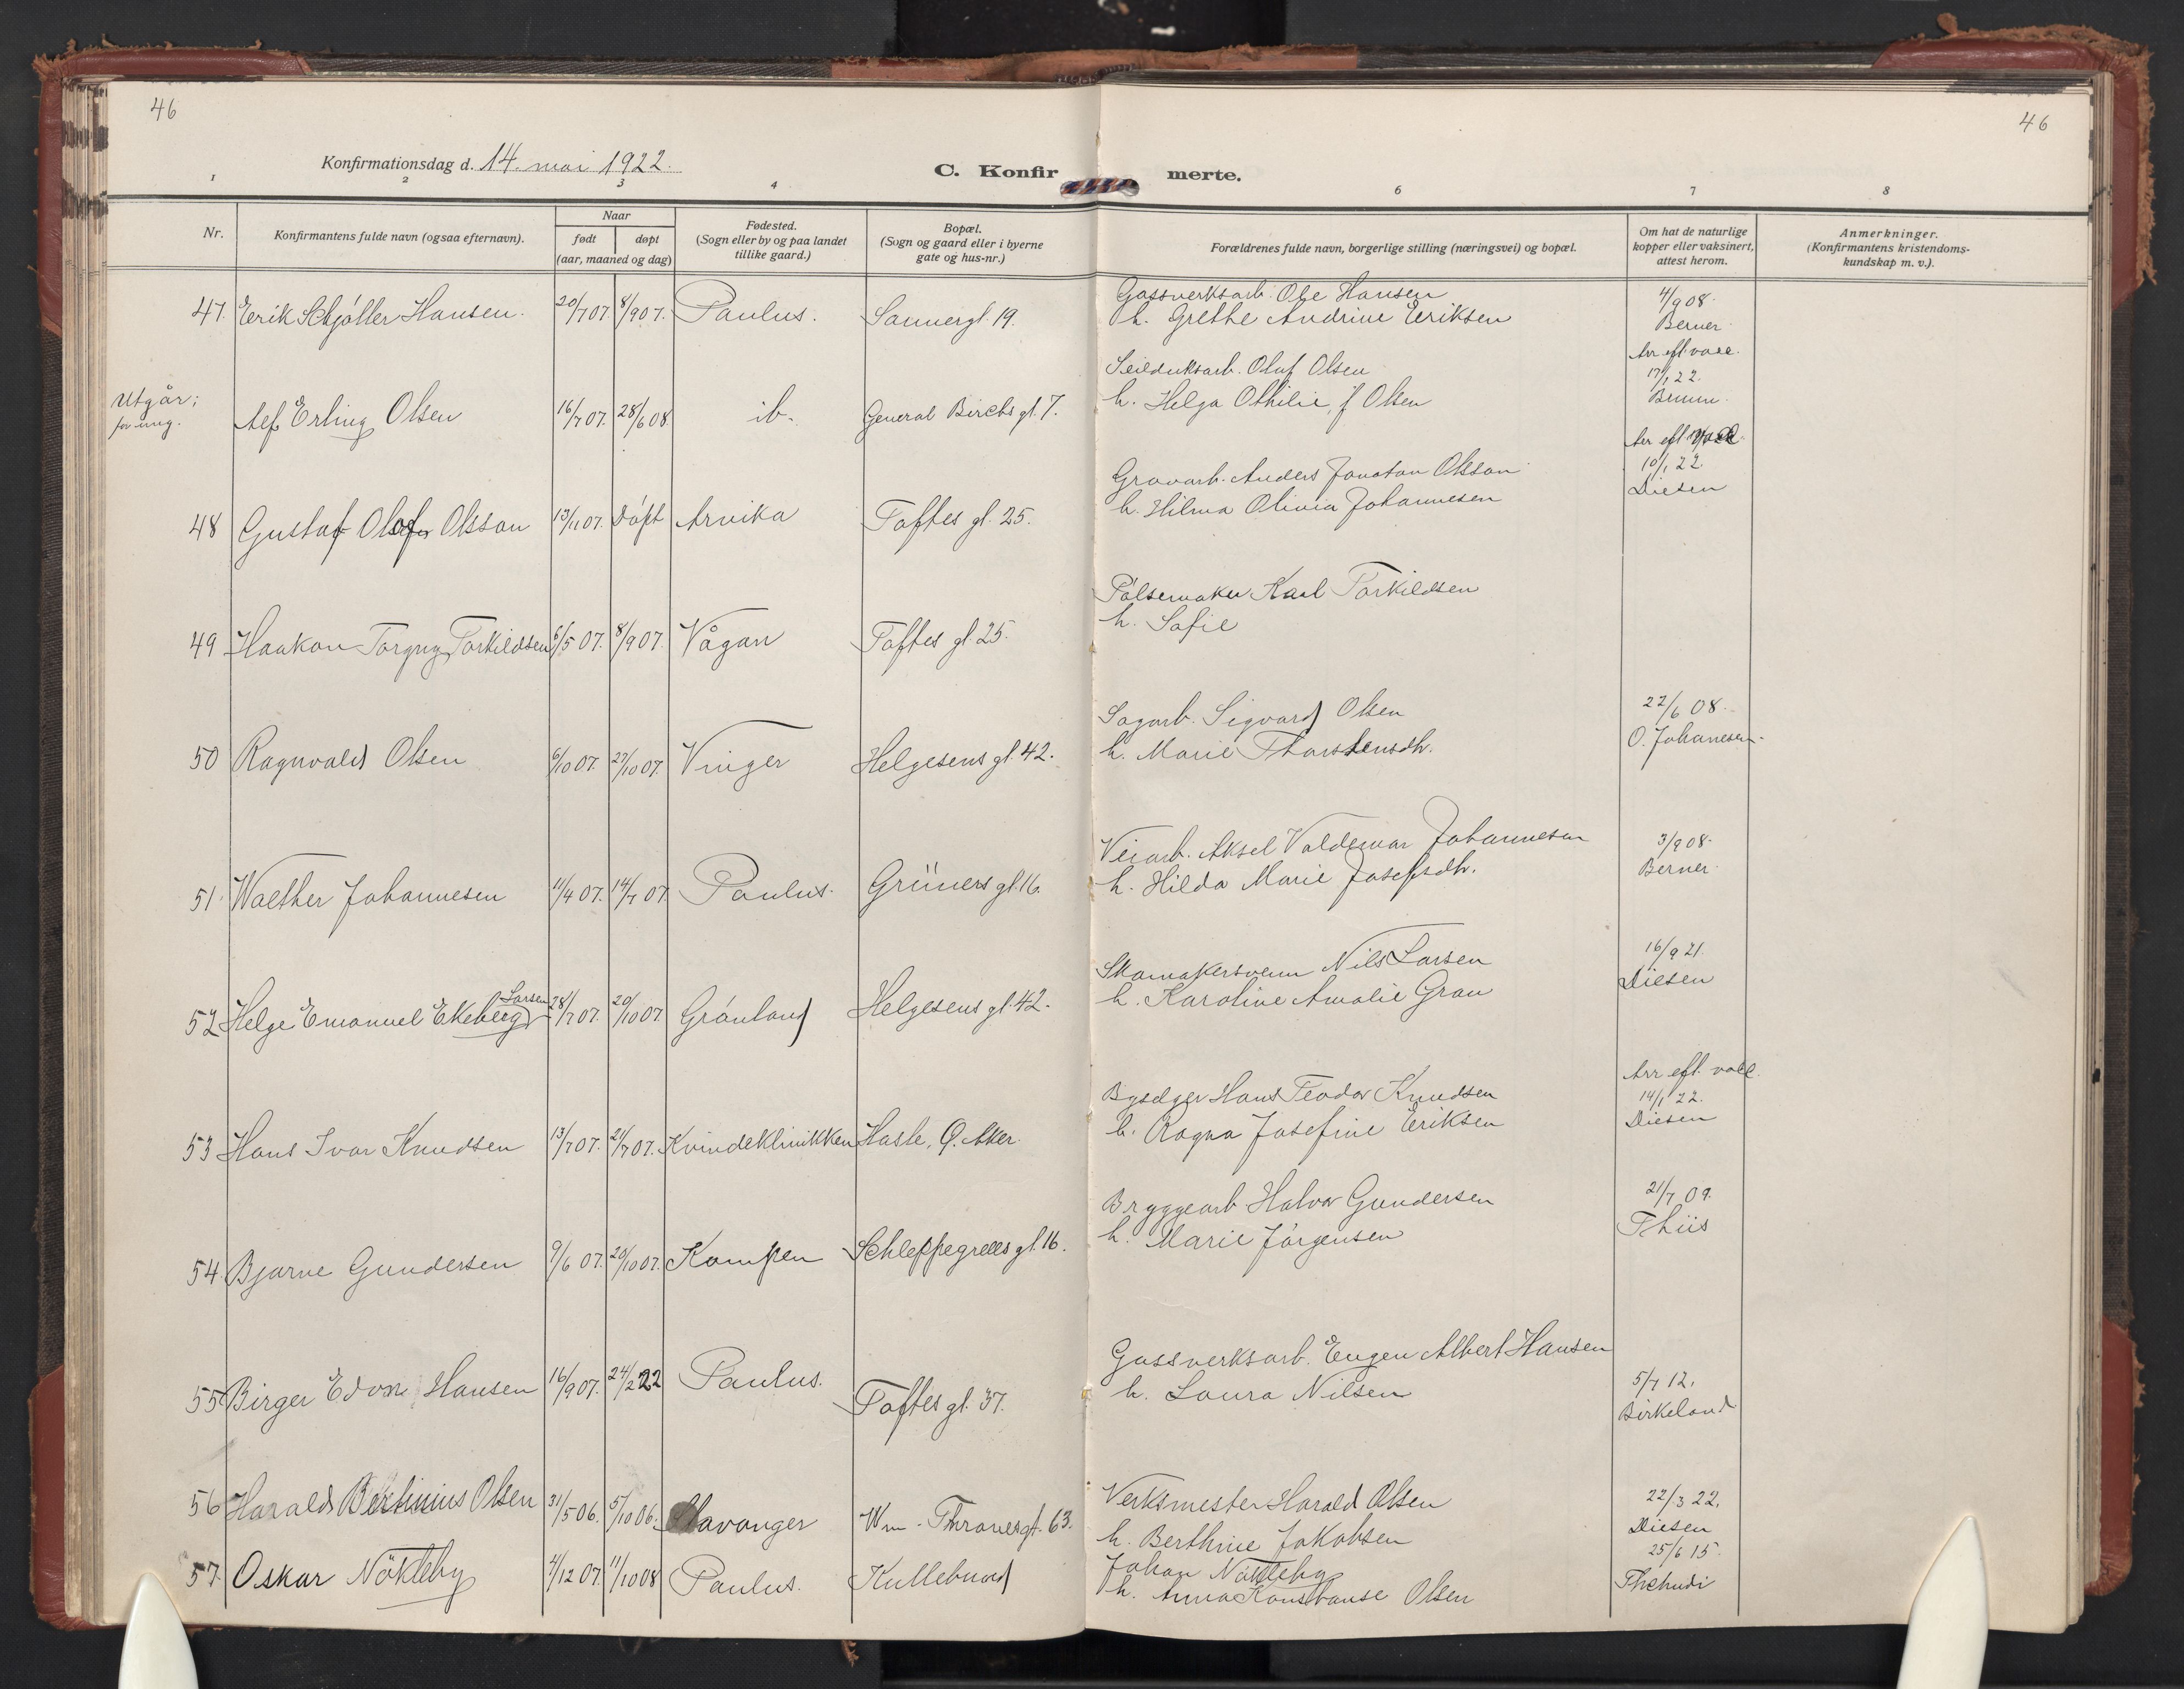 46
46
Konfirmationsdag d. 14. mai 1922.
C. Konfirmerte.
1 2 3 4 6 7 8
Nr.
Konfirmantens fulde navn (ogsaa efternavn).
Naar
født døpt
(aar, maaned og dag)
Fødested.
(Sogn eller by og paa landet
tillike gaard.)
Bopæl.
(Sogn og gaard eller i byerne
gate og hus-nr.)
Forældrenes fulde navn, borgerlige stilling (næringsvei) og bopæl.
Om hat de naturlige
kopper eller vaksinert,
attest herom.
Anmerkninger.
(Konfirmantens kristendoms-
kundskap m. v.).
47. Erik Schjöller Hansen. 20/7 07. 8/9 07. Paulus. Sannergt. 19.
Gassverksarb. Ole Hansen
h. Grethe Andrine Eriksen
4/9 08.
Berner
Utgår;
for ung.
Alf Erling Olsen 16/7 07. 28/6 08. ib. General Birchs gt. 7.
Seilduksarb. Olaf Olsen
h. Helga Othilie, f Olsen
Arr eft. vacc.
17/1 22.
48 Gustaf Olof Olsson 13/11 07. Döpt Arvika Toftes gt. 25.
Gravarb. Anders Jonatan Olsson
h. Hilma Olivia Johannesen
Arr eft vacc.
10/1 22.
Diesen
49 Haakon Torgny Torkildsen 6/5 07. 8/9 07. Vågan Toftes gt. 25.
Pölsemaker Karl Torkildsen
h. Sofie
50 Ragnvald Olsen 6/10 07. 27/10 07. Vinger Helgesens gt. 42.
Sagarb. Sigvard Olsen
h. Marie Thorstensdtr.
22/6 08.
O. Johanesen.
51. Walther Johannesen 11/4 07. 14/7 07 Paulus. Grüners gt. 16.
Veiarb. Aksel Valdemar Johannesen
h. Hilda Marie Josefsdtr.
3/9 08.
Berner
52 Helge Emanuel Ekeberg Larsen 28/7 07. 20/10 07. Grönland Helgesens gt. 42.
Skomakersvenn Nils Larsen
h. Karoline Amalie Grau
16/9 21.
Diesen
53 Hans Ivar Knudsen 13/7 07. 21/7 07. Kvindeklinikken Hasle, Ö. Aker.
Byselger Hans Teodor Knudsen
h. Ragna Josefine Eriksen
Arr eft. vacc.
14/1 22.
Diesen
54. Bjarne Gundersen 9/6 07. 20/10 07. Kampen Schleppegrells gt. 16.
Bryggearb Halvor Gundersen
h. Marie Jörgensen
21/7 09.
Thiis
55 Birger Edvin Hansen 16/9 07. 24/2 22 Paulus. Toftes gt. 37.
Gassverksarb. Eugen Albert Hansen
h. Laura Nilsen
5/7 12.
Birkeland
56 Harald Bertinius Olsen 31/5 06. 5/10 06. Stavanger Wm. Thranesgt. 63.
Verksmester Harald Olsen
h. Berthine Jakobsen
22/3 22.
Diesen
57. Oskar Nökleby 4/12 07. 11/10 08 Paulus. Kullebund
Johan Nökleby
h. Anna Konstanse Olsen
25/6 15.
Thchudi